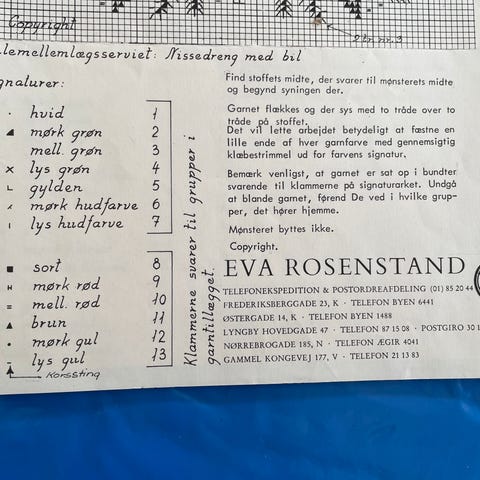 Copyright
2 tr. nr. 3
lemellemlægsserviet: Nissedreng med bil
gnaturer:
· hvid 1
▲ mørk grøn 2
mell. grøn 3
x lys grøn 4
∟ gylden 5
mørk hudfarve 6
ı lys hudfarve 7
■ sort 8
H mørk rød 9
= mell. rød 10
▲ brun 11
• mørk gul 12
– lys gul 13
Korssting
Klammerne svarer til grupper i
garntillægget.
Find stoffets midte, der svarer til mønsterets midte
og begynd syningen der.
Garnet flækkes og der sys med to tråde over to
tråde på stoffet.
Det vil lette arbejdet betydeligt at fæstne en
lille ende af hver garnfarve med gennemsigtig
klæbestrimmel ud for farvens signatur.
Bemærk venligst, at garnet er sat op i bundter
svarende til klammerne på signaturarket. Undgå
at blande garnet, førend De ved i hvilke grup-
per, det hører hjemme.
Mønsteret byttes ikke.
Copyright.
EVA ROSENSTAND
TELEFONEKSPEDITION & POSTORDREAFDELING (01) 85 20 44
FREDERIKSBERGGADE 23, K · TELEFON BYEN 6441
ØSTERGADE 14, K · TELEFON BYEN 1488
LYNGBY HOVEDGADE 47 · TELEFON 87 15 08 · POSTGIRO 30 1
NØRREBROGADE 185, N · TELEFON ÆGIR 4041
GAMMEL KONGEVEJ 177, V · TELEFON 21 13 83